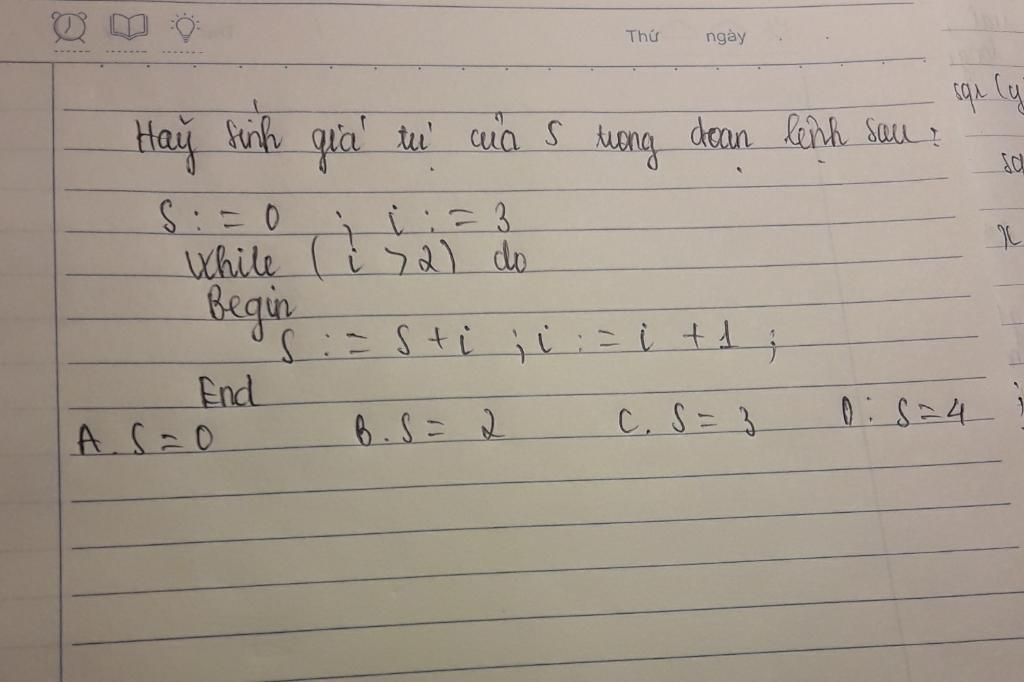 Thứ ngày
Hãy tính giá trị của S trong đoạn lệnh sau:
S := 0 ; i := 3
While ( i > 2 ) do
Begin
S := S + i ; i := i + 1 ;
End
A. S = 0 B. S = 2 C. S = 3 D: S = 4
sqr (y
x